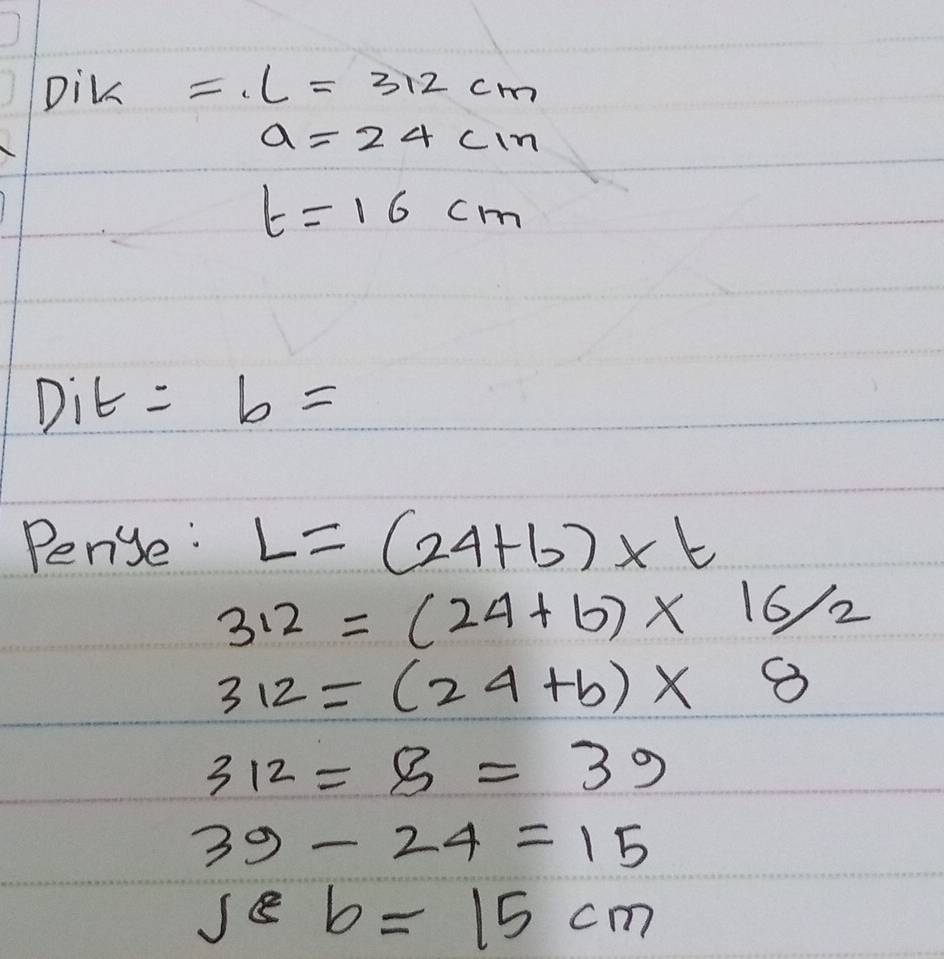 Dik = . L = 312 cm
a = 24 cm
t = 16 cm
Dit = b =
Penye : L = (24+b) x t
312 = (24+b) x 16/2
312 = (24+b) x 8
312 = 8 = 39
39 - 24 = 15
b = 15 cm